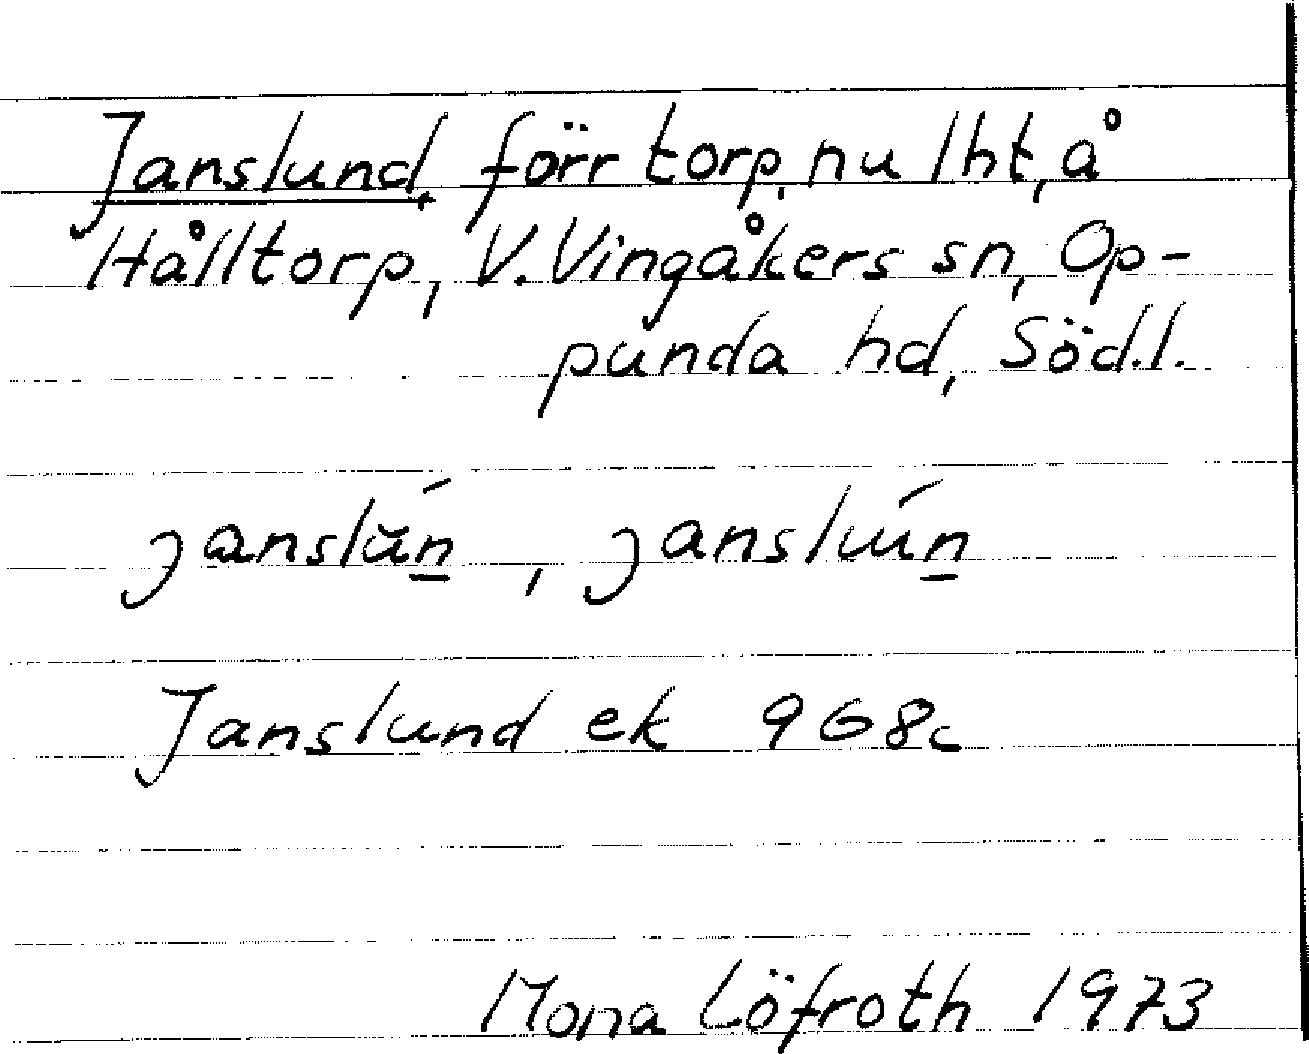 Janslund, förr torp, nu lht, å
Hålltorp, V. Vingåkers sn, Op-
punda hd, Söd.l.
janslŭńn̲, jansluńn̲
Janslund ek 968c
Mona Löfroth 1973